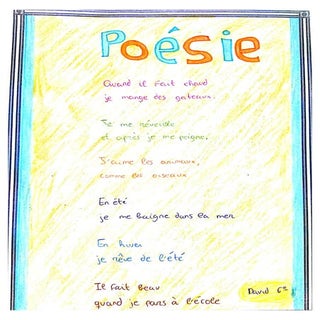 Poésie
Quand il fait chaud
je mange des gateaux.
Je me réveille
et après je me peigne.
J'aime les animaux,
comme les oiseaux
En été
je me baigne dans la mer
En hiver
je rêve de l'été
Il fait beau
quand je pars à l'école
David 6e